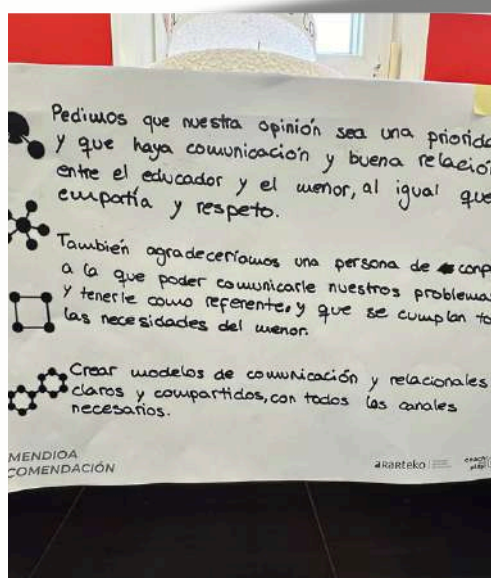 Pedimos que nuestra opinión sea una priorida
y que haya comunicación y buena relación
entre el educador y el menor, al igual que
empatía y respeto.
También agradeceríamos una persona de conf
a la que poder comunicarle nuestros problemas
y tenerle como referente, y que se cumplan to
las necesidades del menor.
Crear modelos de comunicación y relacionales
claros y compartidos, con todos los canales
necesarios.
MENDIOA
COMENDACIÓN
ararteko